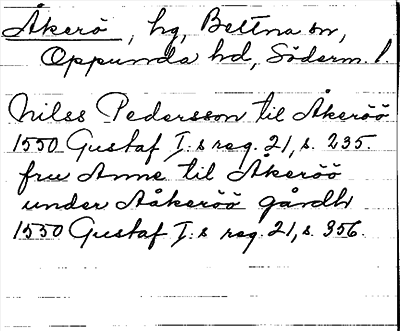 Åkerö, hg, Bettna sn,
Oppunda hd, Söderm. l.
Nilss Pedersson til Åkeröö
1550 Gustaf I:s reg. 21, s. 235.
fru Anne til Åkeröö
under Aåkeröö gårdh
1550 Gustaf I:s reg. 21, s. 356.